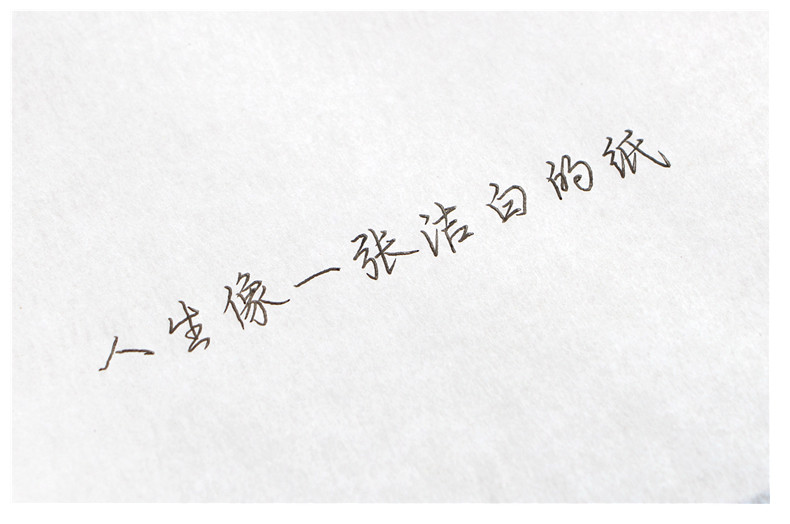 人生像一张洁白的纸